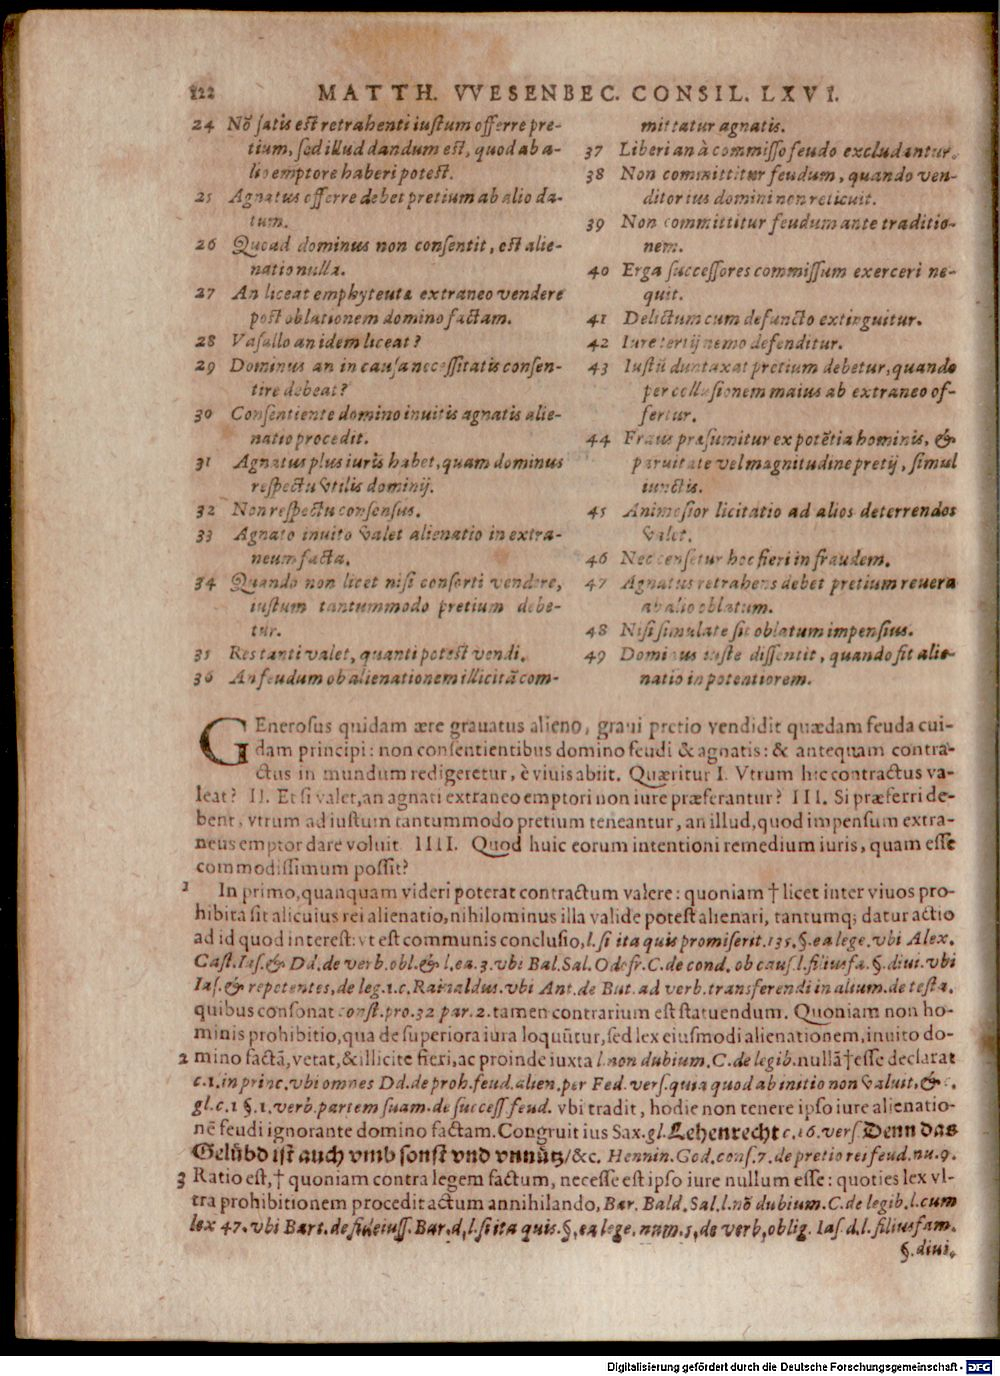 122 MATTH. VVESENBEC. CONSIL. LXVI.
24 Nõ ſatis eſt retrahenti iuſtum offerre pre-
tium, ſed illud dandum eſt, quod ab a-
lio emptore haberi poteſt.
25 Agnatus offerre debet pretium ab alio da-
tum.
26 Quoad dominus non conſentit, eſt alie-
natio nulla.
27 An liceat emphyteutæ extraneo vendere
poſt oblationem domino factam.
28 Vaſallo an idem liceat?
29 Dominus an in cauſa neceſſitatis conſen-
tire debeat?
30 Conſentiente domino inuitis agnatis alie-
natio procedit.
31 Agnatus plus iuris habet, quam dominus
reſpectu vtilis dominij.
32 Non reſpectu conſenſus.
33 Agnato inuito valet alienatio in extra-
neum facta.
34 Quando non licet niſi conſorti vendere,
iuſtum tantummodo pretium debe-
tur.
35 Res tanti valet, quanti poteſt vendi.
36 An feudum ob alienationem illicitã com-
mittatur agnatis.
37 Liberi an à commiſſo feudo excludantur.
38 Non committitur feudum, quando ven-
ditor ius domini non reticuit.
39 Non committitur feudum ante traditio-
nem.
40 Erga ſucceſſores commiſſum exerceri ne-
quit.
41 Delictum cum defuncto extinguitur.
42 Iure tertij nemo defenditur.
43 Iuſtũ duntaxat pretium debetur, quando
per colluſionem maius ab extraneo of-
fertur.
44 Fraus præſumitur ex potẽtia hominis, &
paruitate vel magnitudine pretij, ſimul
iunctis.
45 Animoſior licitatio ad alios deterrendos
valet.
46 Nec cenſetur hoc fieri in fraudem.
47 Agnatus retrahens debet pretium reuera
ab alio oblatum.
48 Niſi ſimulate ſit oblatum impenſius.
49 Dominus iuſte diſſentit, quando fit alie-
natio in potentiorem.
GEneroſus quidam ære grauatus alieno, graui pretio vendidit quædam feuda cui-
dam principi: non conſentientibus domino feudi & agnatis: & antequam contra-
ctus in mundum redigeretur, è viuis abiit. Quæritur I. Vtrum hic contractus va-
leat? II. Et ſi valet, an agnati extraneo emptori non iure præferantur? III. Si præferri de-
bent, vtrum ad iuſtum tantummodo pretium teneantur, an illud, quod impenſum extra-
neus emptor dare voluit. IIII. Quod huic eorum intentioni remedium iuris, quam eſſe
commodiſſimum poſſit?
1 In primo, quanquam videri poterat contractum valere: quoniam † licet inter viuos pro-
hibita ſit alicuius rei alienatio, nihilominus illa valide poteſt alienari, tantumq; datur actio
ad id quod intereſt: vt eſt communis concluſio, l. ſi ita quis promiſerit. 135. §. ea lege. vbi Alex.
Caſt. Iaſ. & Dd. de verb. obl. & l. ea. 3. vbi Bal. Sal. Odofr. C. de cond. ob cauſ. l. filiusfa. §. diui. vbi
Iaſ. & repetentes, de leg. 1. c. Rainaldus. vbi Ant. de But. ad verb. transferendi in alium. de teſta.
quibus conſonat conſt. pro. 32 par. 2. tamen contrarium eſt ſtatuendum. Quoniam non ho-
minis prohibitio, qua de ſuperiora iura loquũtur, ſed lex eiuſmodi alienationem, inuito do-
2 mino factã, vetat, & illicite fieri, ac proinde iuxta l. non dubium. C. de legib. nullã † eſſe declarat
c. 1. in princ. vbi omnes Dd. de proh. feud. alien. per Fed. verſ. quia quod ab initio non valuit, & c.
gl. c. 1 §. 1. verb. partem ſuam. de ſucceſſ. feud. vbi tradit, hodie non tenere ipſo iure alienatio-
nẽ feudi ignorante domino factam. Congruit ius Sax. gl. Lehenrecht c. 16. verſ. Denn das
Gelübd iſt auch vmb ſonſt vnd vnnütz/ &c. Hennin. God. conſ. 7. de pretio rei feud. nu. 9.
3 Ratio eſt, † quoniam contra legem factum, neceſſe eſt ipſo iure nullum eſſe: quoties lex vl-
tra prohibitionem procedit actum annihilando, Bar. Bald. Sal. l. nõ dubium. C. de legib. l. cum
lex 47. vbi Bart. de fideiuſſ. Bar. d. l. ſi ita quis. §. ea lege. num. 5. de verb. oblig. Iaſ. d. l. filiusfam.
§. diui.
Digitalisierung gefördert durch die Deutsche Forschungsgemeinschaft - DFG